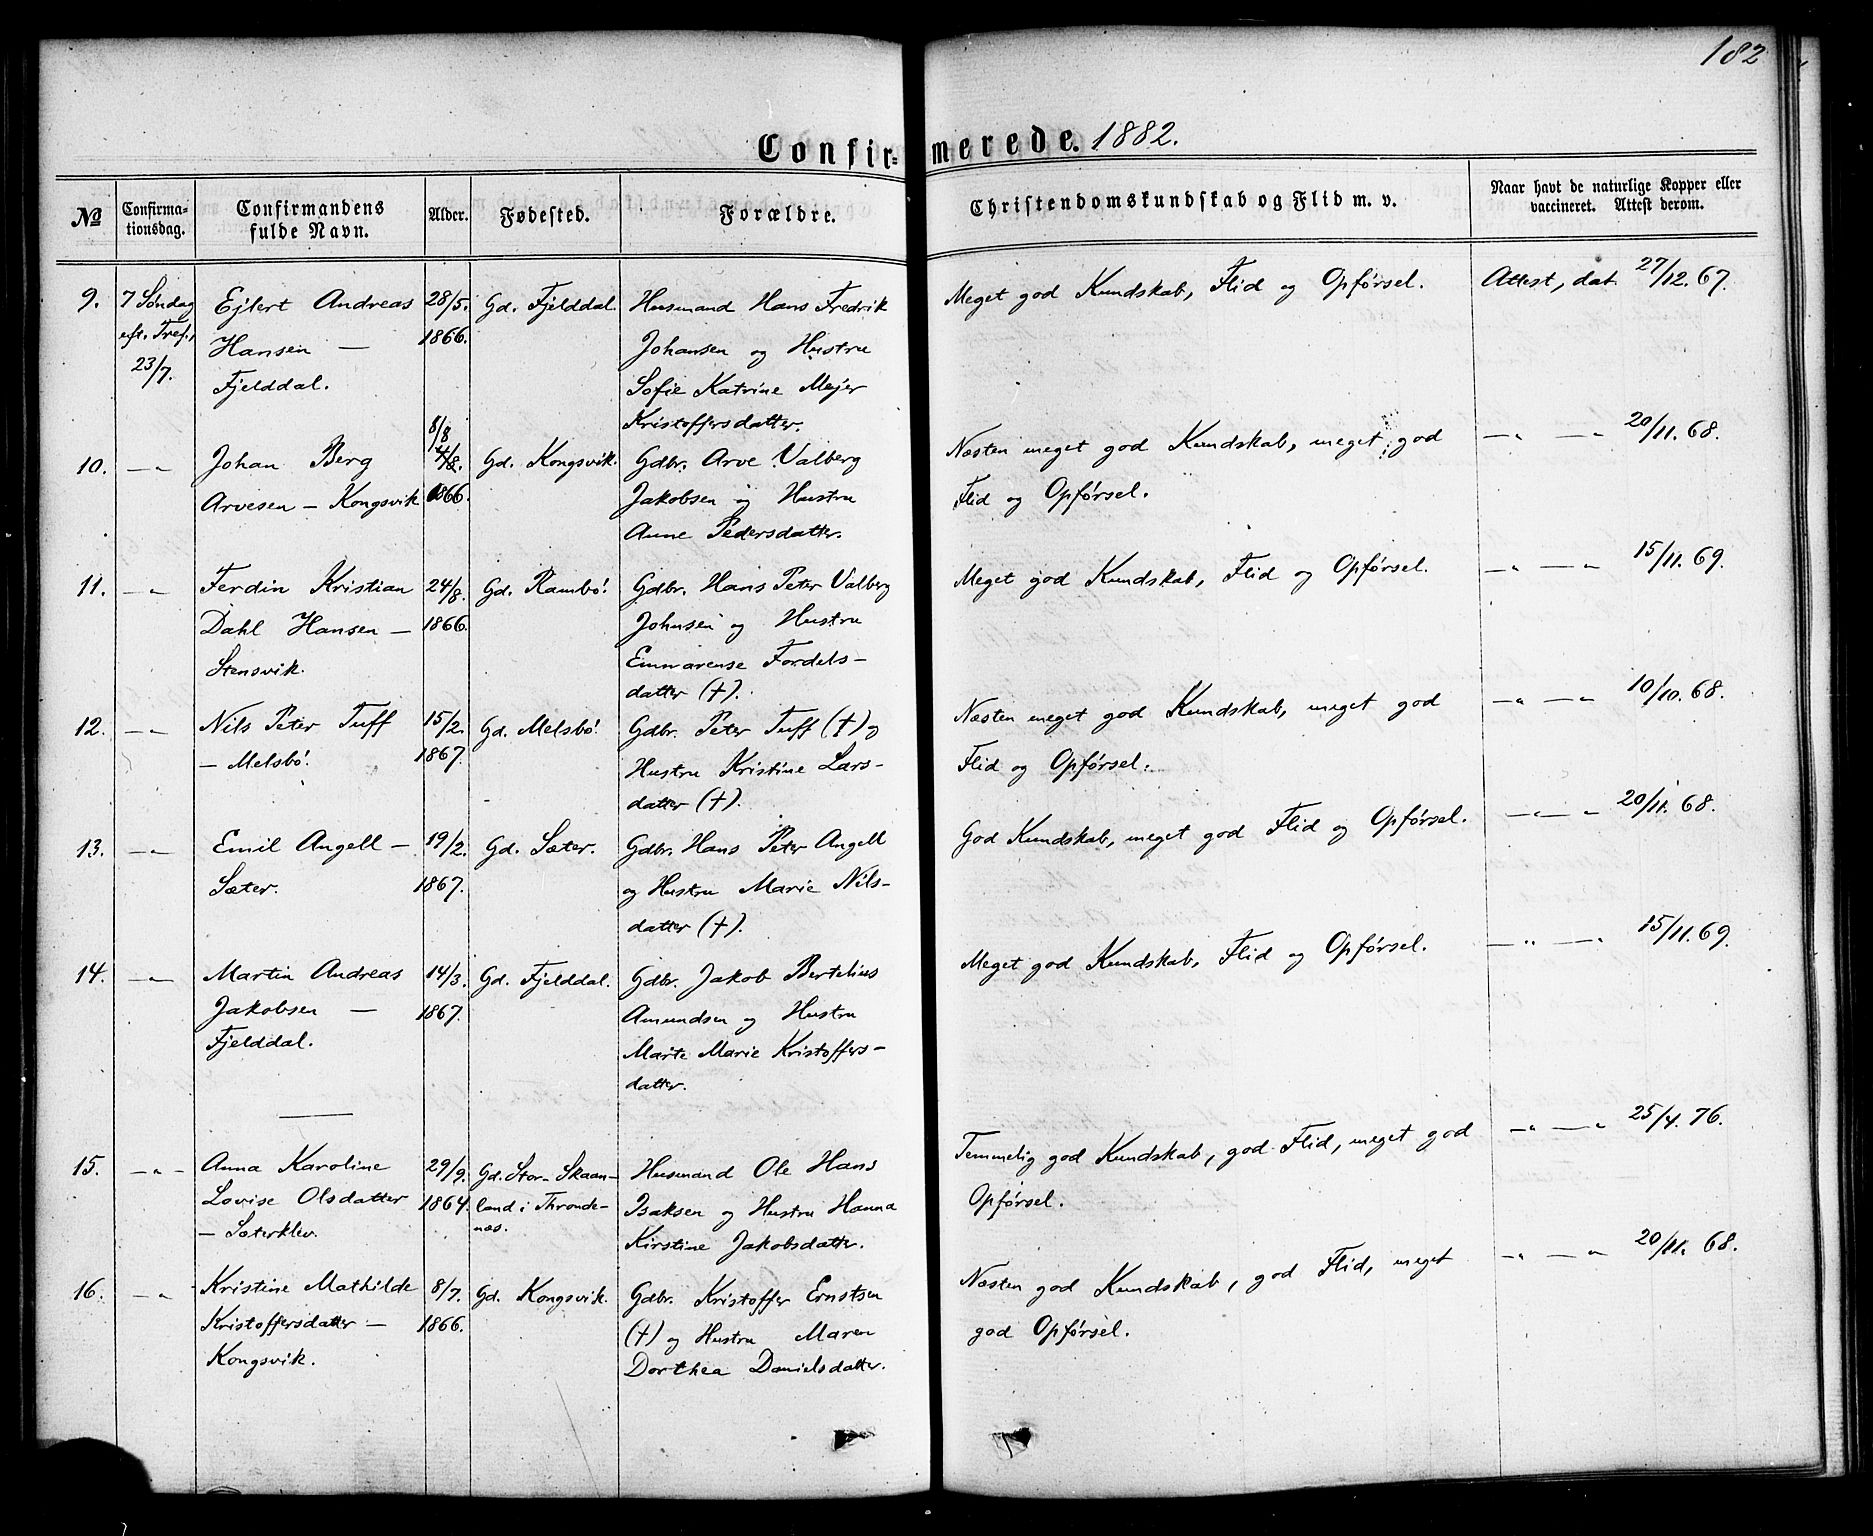 182
Confirmerede. 1882.
№
Confirma-
tionsdag.
Confirmandens
fulde Navn.
Alder.
Fødested.
Forældre.
Christendomskundskab og Flid m. v.
Naar havt de naturlige Kopper eller
vaccineret. Attest derom.
9. 7 Søndag Ejlert Andreas 28/5. Gd. Fjelddal. Husmand Hans Fredrik Meget god Kundskab, Flid og Opførsel. Attest, dat. 27/12. 67.
eft. Tref., Hansen — 1866. Johansen og Hustru
23/7. Fjelddal. Sofie Katrine Mejer
Kristoffersdatter.
8/8
10. —〃 Johan Berg 4/8. Gd. Kongsvik. Gdbr. Arve Valberg Næsten meget god Kundskab, meget god —〃 —〃 20/11. 68.
Arvesen — Kongsvik 1866. Jakobsen og Hustru Flid og Opførsel.
Anne Pedersdatter.
11. —〃 Ferdin Kristian 24/8. Gd. Rambø. Gdbr. Hans Peter Valberg Meget god Kundskab, Flid og Opførsel. —〃 —〃 15/11. 69.
Dahl Hansen — 1866. Johnsen og Hustru
Stensvik. Emmarense Fordels-
datter (†).
12. —〃 Nils Peter Tuff 15/2. Gd. Melsbø. Gdbr. Peter Tuff (†) og Næsten meget god Kundskab, meget god —〃 —〃 10/10. 68.
— Melsbø. 1867. Hustru Kristine Lars- Flid og Opførsel.
datter (†).
13. —〃 Emil Angell — 19/2. Gd. Sæter. Gdbr. Hans Peter Angell God Kundskab, meget god Flid og Opførsel. —〃 —〃 20/11. 68.
Sæter. 1867. og Hustru Marie Nils-
datter (†).
14. —〃 Martin Andreas 14/3. Gd. Fjelddal. Gdbr. Jakob Bertelius Meget god Kundskab, Flid og Opførsel. —〃 —〃 15/11. 69.
Jakobsen — 1867. Amundsen og Hustru
Fjelddal. Marte Marie Kristoffers-
datter.
15. —〃— Anna Karoline 29/9. Gd. Stor-Skaan- Husmand Ole Hans Temmelig god Kundskab, god Flid, meget god —〃 —〃 25/4. 76.
Lovise Olsdatter 1864. land i Thronde- Isaksen og Hustru Hanna Opførsel.
— Sæterklev. næs. Kirstine Jakobsdatter.
16. —〃 Kristine Mathilde 8/7. Gd. Kongsvik. Gdbr. Kristoffer Ernstsen Næsten god Kundskab, god Flid, meget —〃 —〃 20/11. 68.
Kristoffersdatter — 1866. (†) og Hustru Maren god Opførsel.
Kongsvik. Dorthea Danielsdatter.